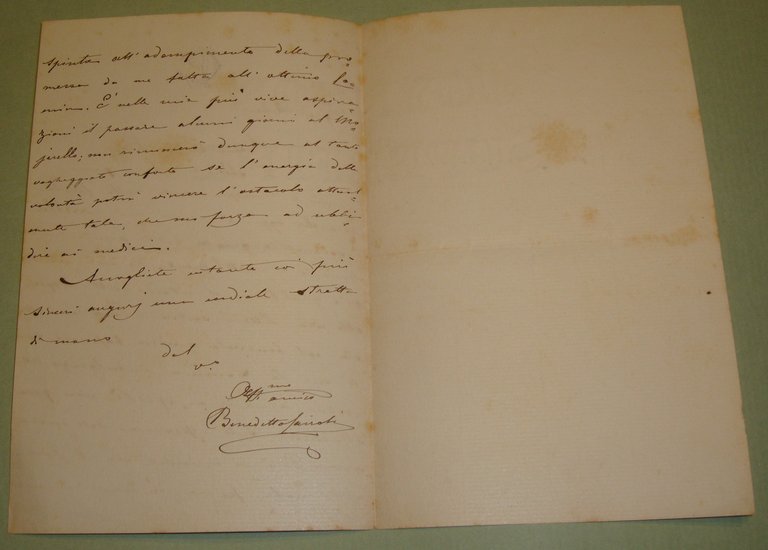 spinta all'adempimento della pro=
messa da me fatta all'ottimo
È nelle mie più vive aspira=
zioni il passare alcuni giorni al
non rinuncierò dunque al tanto
vagheggiato conforto se l'energia della
volontà potrà vincere l'ostacolo attual=
mente tale, che mi forza ad ubbi=
dire ai medici.
Accogliete intanto coi più
sinceri augurj una cordiale stretta
di mano
dal
v.o
Aff.mo
amico
Benedetto Cairoli